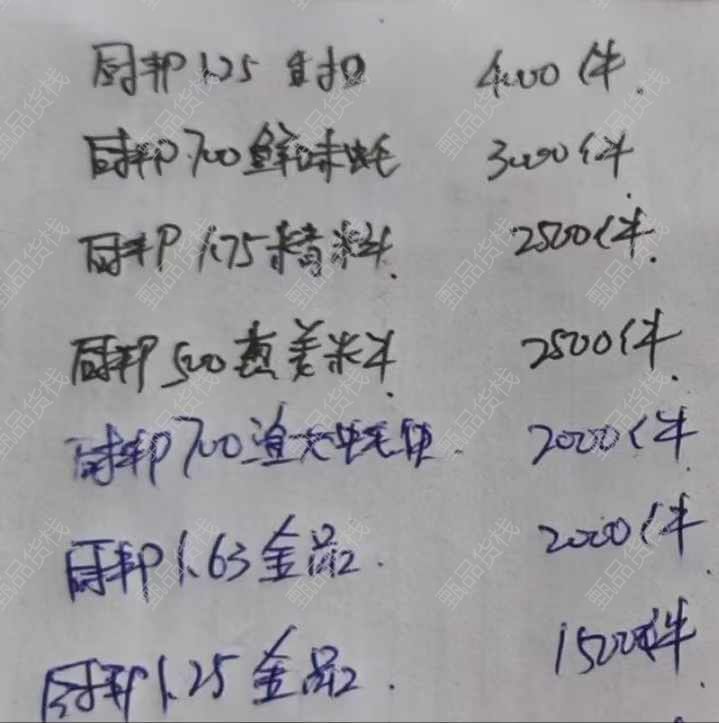 厨邦1.25生抽 4000件.
厨邦700鲜味蚝 3000件
厨邦1.75精料. 2500件.
厨邦500葱姜料 2500件.
厨邦700渔大蚝 2000件.
厨邦1.63金品. 2000件.
厨邦1.25金品. 1500件.
甄品货栈